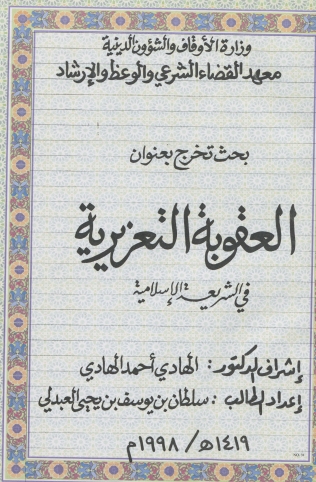 وزارة الأوقاف والشؤون الدينية
معهد القضاء الشرعي والوعظ والإرشاد
بحث تخرج بعنوان
العقوبة التعزيرية
في الشريعة الإسلامية
إشراف الدكتور: الهادي أحمد الهادي
إعداد الطالب: سلطان بن يوسف بن يحيى العبدلي
١٤١٩ھ / ١٩٩٨م